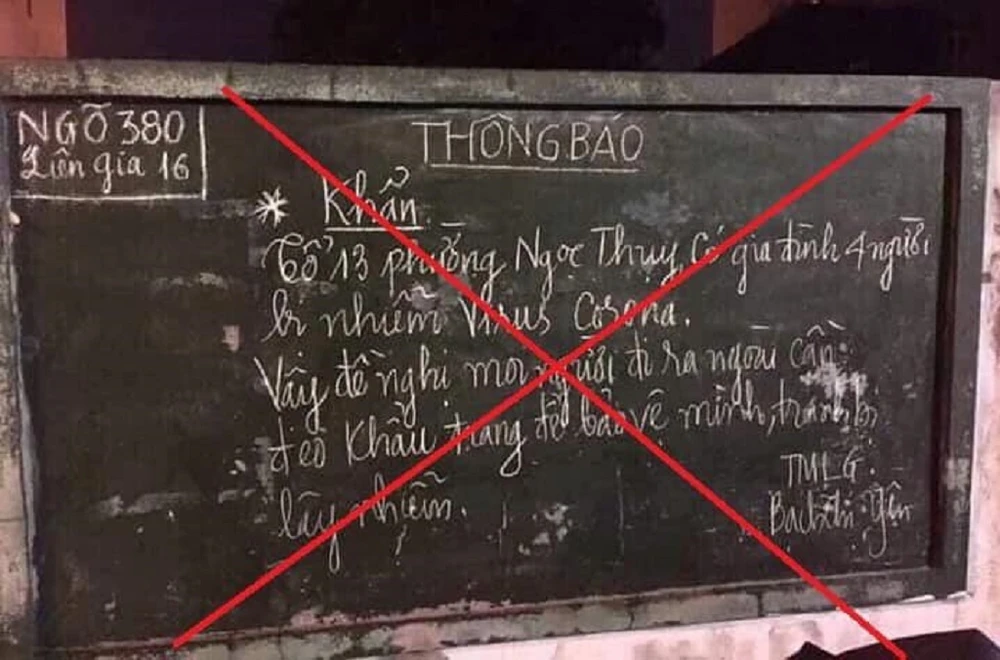 NGÕ 380
Liên gia 16
THÔNG BÁO
* Khẩn
Tổ 13 phường Ngọc Thụy, Có gia đình 4 người
bị nhiễm Virus Corona.
Vậy đề nghị mọi người đi ra ngoài cần
đeo khẩu trang để bảo vệ mình, tránh bị
lây nhiễm.
TMLG.
Bạch Thị Yên